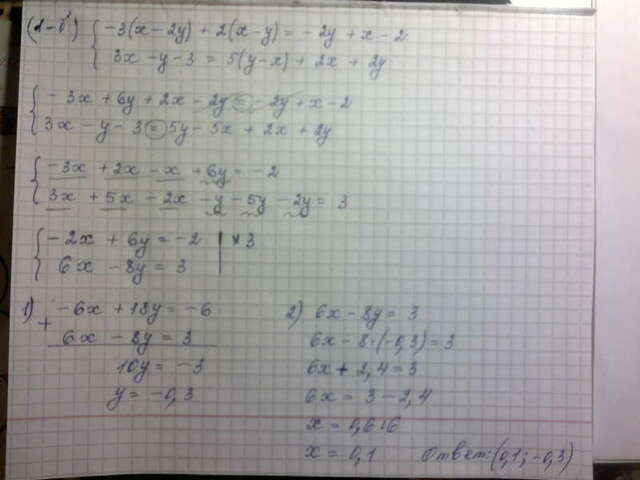 (d-0²) { -3(x-2y) + 2(x-y) = -2y + x - 2
3x - y - 3 = 5(y-x) + 2x + 2y
{ -3x + 6y + 2x - 2y = -2y + x - 2
3x - y - 3 = 5y - 5x + 2x + 2y
{ -3x + 2x - x + 6y = -2
3x + 5x - 2x - y - 5y - 2y = 3
{ -2x + 6y = -2 | * 3
6x - 8y = 3
1) + -6x + 18y = -6
6x - 8y = 3
10y = -3
y = -0,3
2) 6x - 8y = 3
6x - 8·(-0,3) = 3
6x + 2,4 = 3
6x = 3 - 2,4
x = 0,6:6
x = 0,1
Ответ: (0,1; -0,3)